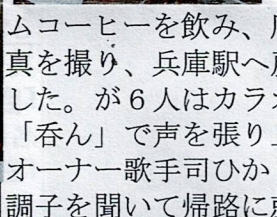 ムコーヒーを飲み、
真を撮り、兵庫駅へ
した。が６人はカラ
「呑ん」で声を張り
オーナー歌手司ひか
調子を聞いて帰路に